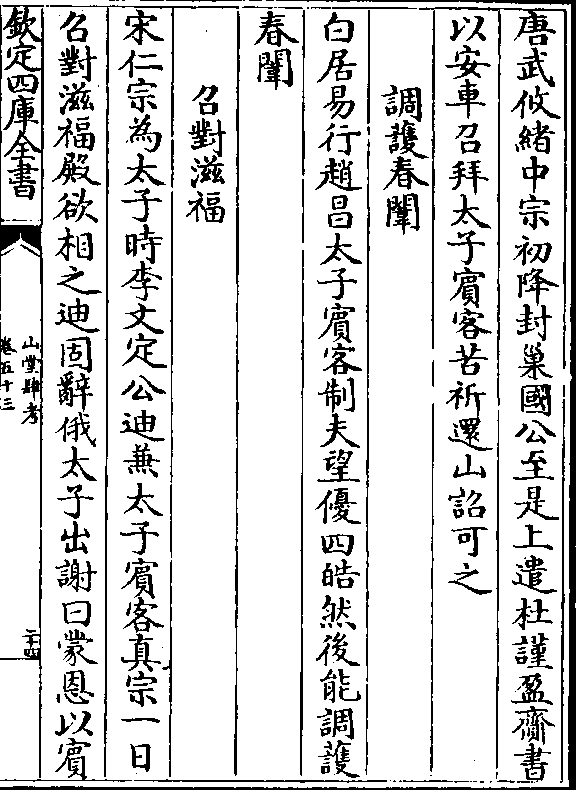 唐武攸緒中宗初降封巢國公至是上遣杜謹盈齎書
以安車召拜太子賓客苦祈還山詔可之
調護春闈
白居易行趙昌太子賓客制夫望優四皓然後能調護
春闈
召對滋福
宋仁宗為太子時李文定公迪兼太子賓客真宗一日
召對滋福殿欲相之迪固辭俄太子出謝曰蒙恩以賓
欽定四庫全書
山堂肆考
卷五十三
二十四